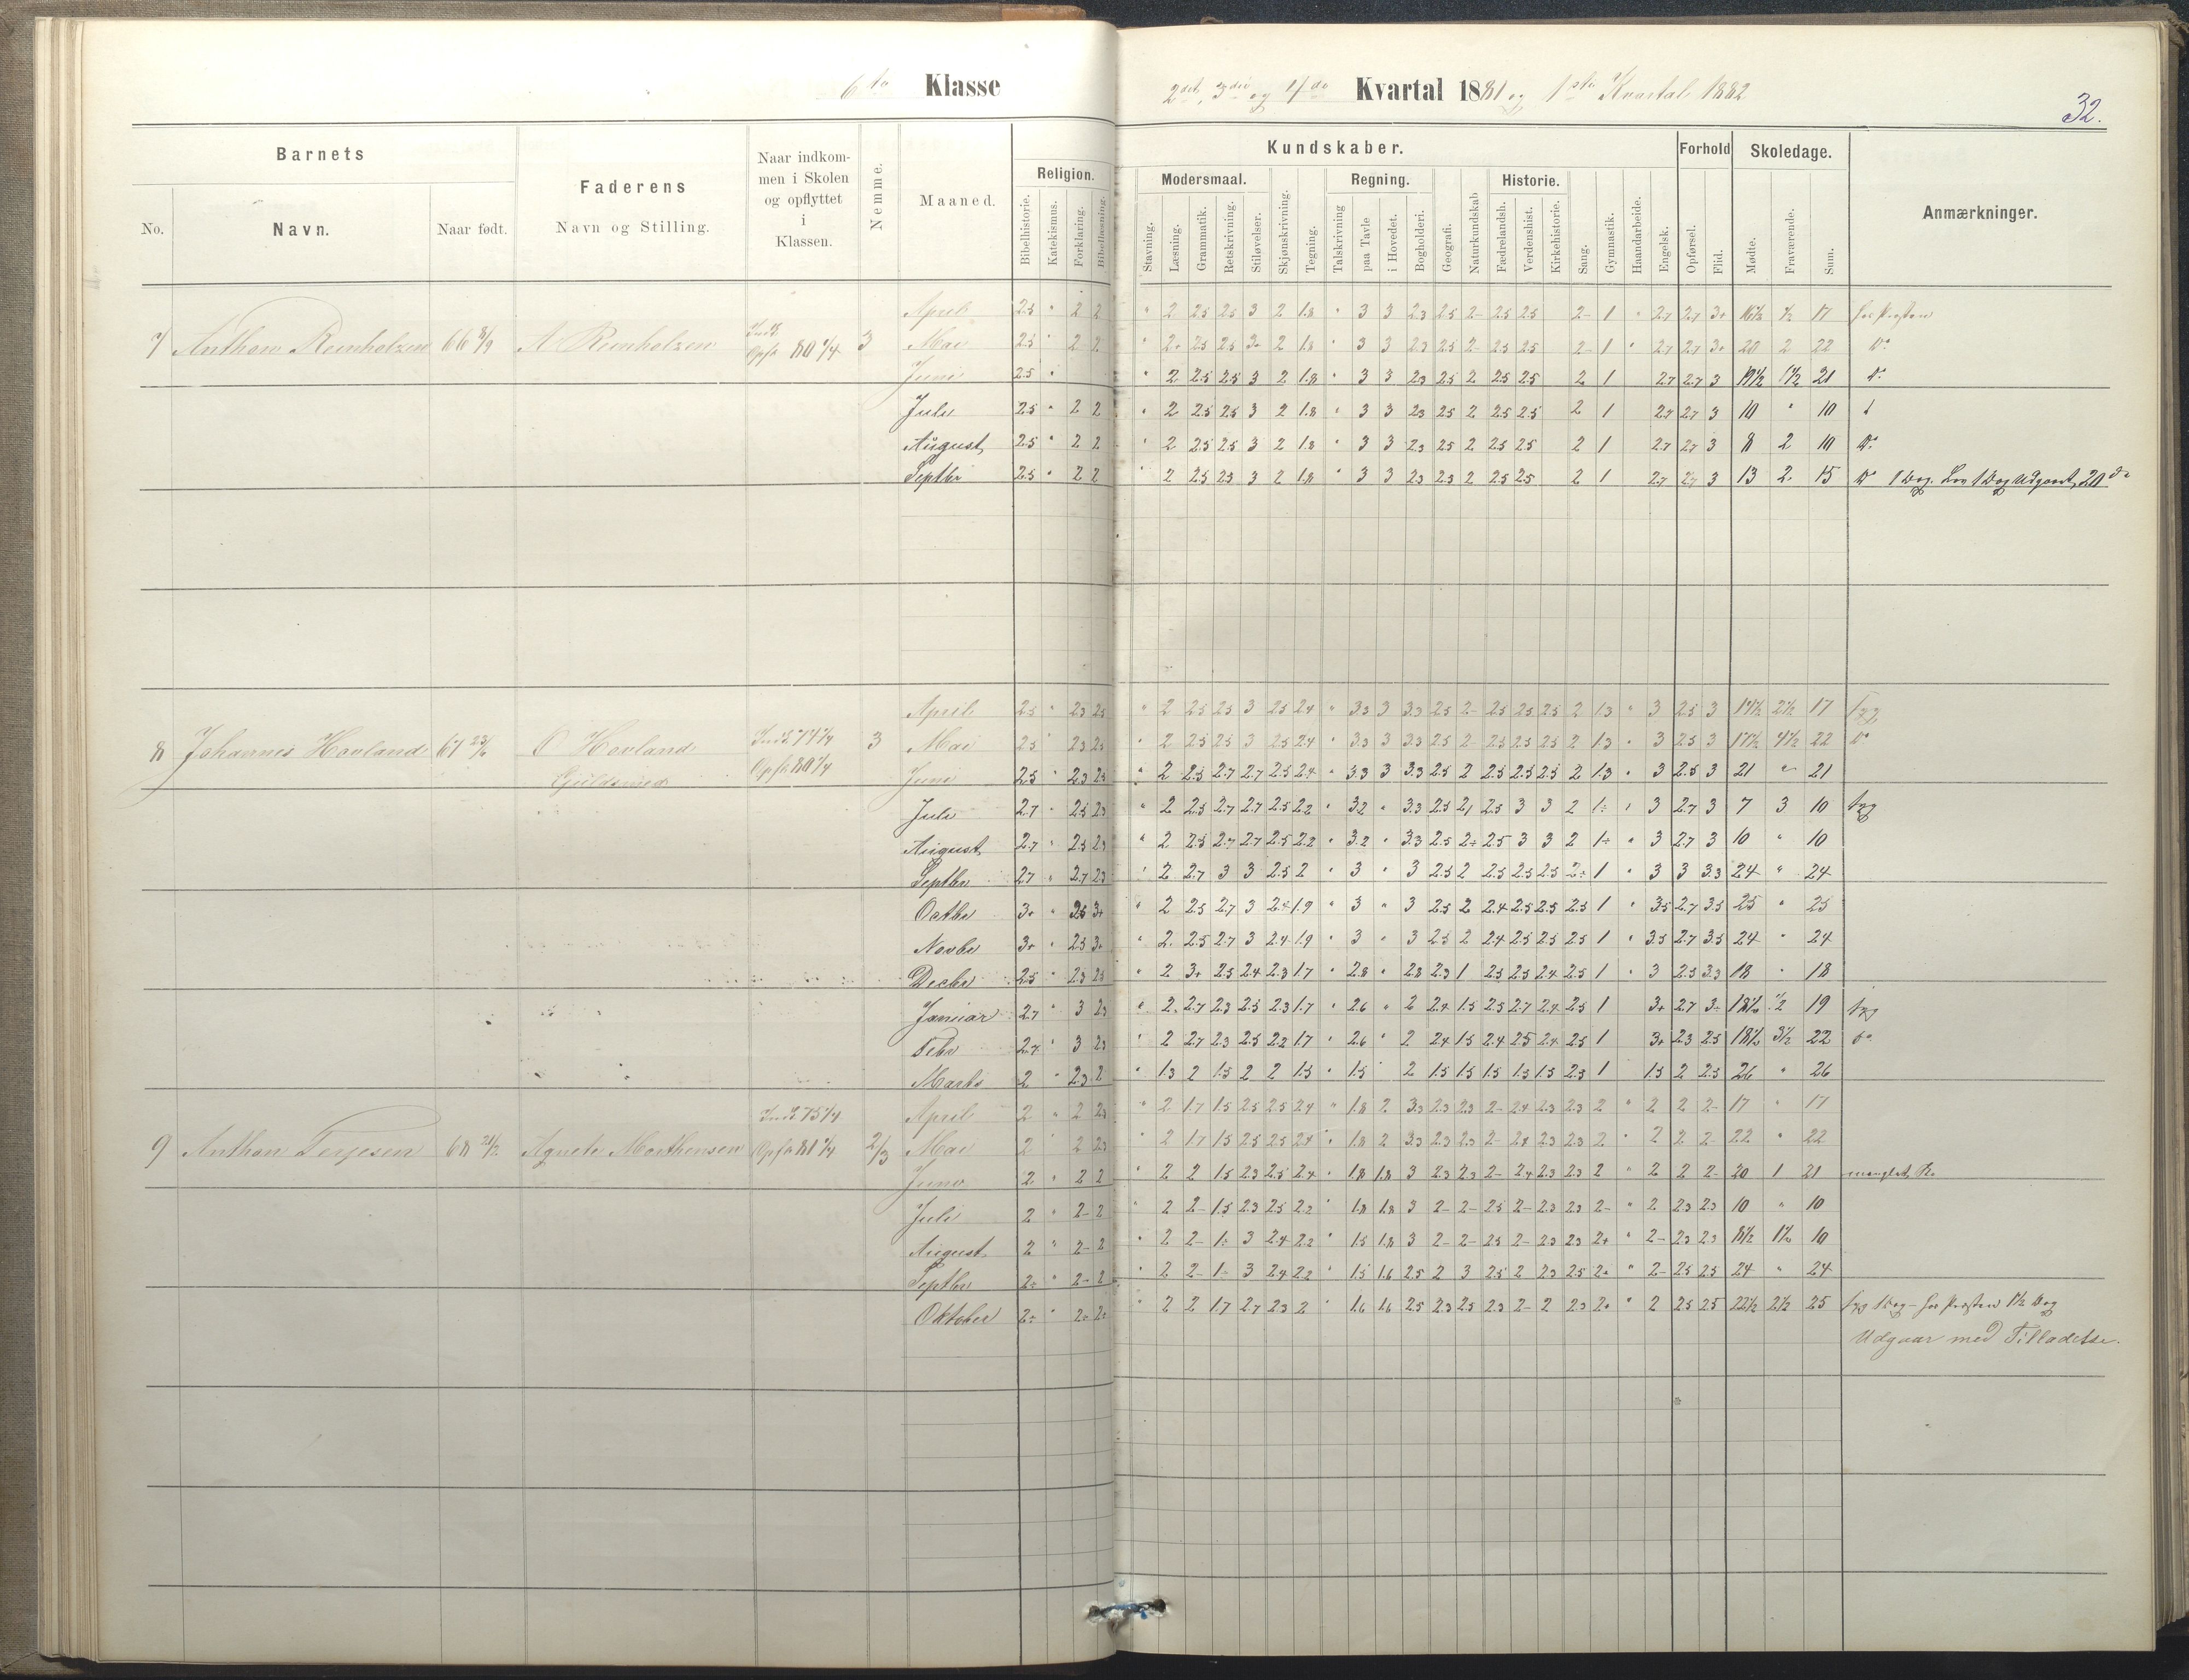 6te Klasse
2det, 3die og 4de Kvartal 1881 og 1ste Kvartal 1882
32.
Barnets
No.
Navn.
Naar født.
Faderens
Navn og Stilling.
Naar indkom-
men i Skolen
og opflyttet
i
Klassen.
Nemme.
Maaned.
Kundskaber.
Religion.
Bibelhistorie.
Katekismus.
Forklaring.
Bibellæsning.
Modersmaal.
Stavning.
Læsning.
Grammatik.
Retskrivning.
Stiløvelser.
Skjønskrivning.
Tegning.
Regning.
Talskrivning
paa Tavle
i Hovedet.
Bogholderi.
Geografi.
Naturkundskab
Historie.
Fædrelandsh.
Verdenshist.
Kirkehistorie.
Sang.
Gymnastik.
Haandarbeide.
Engelsk.
Forhold
Opførsel.
Flid.
Skoledage.
Mødte.
Fraværende.
Sum.
Anmærkninger.
April 2.5 " 2 2 " 2 2.5 2.5 3 2 1.8 " 3 3 2.3 2.5 2- 2.5 2.5 2- 1 " 2.7 2.7 3+ 16½ ½ 17 hos Presten
7 Anthon Reinholzen 66 8/9 A Reinholzen Indk Opfl 80 1/4 3 Mai 2.5 " 2 2 " 2+ 2.5 2.5 3+ 2 1.8 " 3 3 2.3 2.5 2- 2.5 2.5 2- 1 " 2.7 2.7 3+ 20 2 22 Do
Juni 2.5 " " 2 2.5 2.5 3 2 1.8 " 3 3 2.3 2.5 2 2.5 2.5 2 1 2.7 2.7 3 19½ 1½ 21 Do
Juli 2.5 " 2 2 " 2 2.5 2.5 3 2 1.8 " 3 3 2.3 2.5 2 2.5 2.5 2 1 2.7 2.7 3 10 " 10
August 2.5 " 2 2 " 2 2.5 2.5 3 2 1.8 " 3 3 2.3 2.5 2 2.5 2.5 2 1 2.7 2.7 3 8 2 10 Do
Septbr 2.5 " 2 2 " 2 2.5 2.3 3 2 1.8 " 3 3 2.3 2.3 2 2.5 2.5 2 1 2.7 2.7 3 13 2 15 Do 1 Dag. Lov 1 Dag Udgaaet 20de
April 2.5 " 2.3 2.5 " 2 2.5 2.5 3 2.5 2.4 " 3.3 3 3.3 2.5 2- 2.5 2.5 2.5 2 1.3 " 3 2.5 3 14½ 2½ 17 syg
8 Johannes Hovland 67 23/6 O Hovland Indk 74 1/4 3 Mai 2.5 " 2.3 2.5 " 2 2.5 2.5 3 2.5 2.4 " 3.3 3 3.3 2.5 2- 2.5 2.5 2.5 2 1.3 " 3 2.5 3 17½ 4½ 22 Do
Guldsmed Opfl 80 1/4 Juni 2.5 " 2.3 2.5 " 2 2.5 2.7 2.7 2.5 2.4 " 3.3 3 3.3 2.5 2 2.5 2.5 2.5 2 1.3 " 3 2.5 3 21 " 21
Juli 2.7 " 2.5 2.3 " 2 2.5 2.7 2.7 2.5 2.2 " 3.2 " 3.3 2.5 2.5 3 3 2 1÷ " 3 2.7 3 7 3 10 syg
August 2.7 " 2.5 2.3 " 2 2.5 2.7 2.7 2.5 2.2 " 3.2 " 3.3 2.5 2÷ 2.5 3 3 2 1÷ " 3 2.7 3 10 " 10
Septbr 2.7 " 2.7 2.3 " 2 2.7 3 3 2.5 2 " 3 " 3 2.5 2 2.5 2.5 2.5 2÷ 1 " 3 3 3.3 24 " 24
Octbr 3+ " 2.5 3+ " 2 2.5 2.7 3 2.4 1.9 " 3 " 3 2.5 2 2.4 2.5 2.5 2.5 1 " 3.5 2.7 3.5 25 " 25
Novbr 3+ " 2.5 3+ " 2. 2.5 2.7 3 2.4 1.9 " 3 " 3 2.5 2 2.4 2.5 2.5 2.5 1 " 3.5 2.7 3.5 24 " 24
Decbr 2.5 " 2.3 2.5 " 2 3+ 2.5 2.4 2.3 1.7 " 2.8 " 2.8 2.3 1 2.5 2.5 2.4 2.5 1 " 3 2.5 3.3 18 " 18
Januar 2.7 " 3 2.3 " 2. 2.7 2.3 2.5 2.3 1.7 " 2.6 " 2 2.4 1.5 2.5 2.7 2.4 2.5 1 3+ 2.7 3÷ 18½ ½ 19 syg
Febr 2.4 " 3 2.3 " 2 2.7 2.3 2.5 2.2 1.7 " 2.6 " 2 2.4 1.5 2.4 2.5 2.4 2.5 1 3+ 2.3 2.5 18½ 3½ 22 Do
Marts 2 " 2.3 2 " 1.3 2 1.5 2 2 1.5 " 1.5 2 1.5 1.5 1.5 1.5 1.5 2.3 1 1.5 2 2.5 26 " 26
Indk 75 1/4 April 2 " 2 2.3 " 2 1.7 1.5 2.5 2.5 2.4 " 1.8 2 3.3 2.3 2.3 2- 2.4 2.3 2.3 2 " 2 2 2- 17 " 17
9 Anthon Terjesen 68 21/2 Agnete Morthensen Opfl 81 1/4 2/3 Mai 2 " 2 2.3 " 2 1.7 1.5 2.5 2.5 2.4 " 1.8 2 3.3 2.3 2.3 2- 2.4 2.3 2.3 2 " 2 2 2- 22 " 22
Juni 2 " 2 2 " 2 2 1.5 2.3 2.5 2.4 " 1.8 1.8 3 2.3 2.3 2- 2.4 2.3 2.3 2 " 2 2 2- 20 1 21 manglet
Juli 2 " 2- 2 " 2 2- 1.5 2.3 2.5 2.2 " 1.8 1.8 3 2- 2- 2.5 2- 2.3 2.3 2- " 2 2.3 2.3 10 " 10
August 2 " 2- 2 " 2 2- 1÷ 3 2.4 2.2 " 1.5 1.8 3 2- 2- 2.5 2- 2.3 2.3 2+ " 2- 2.3 2.3 8½ 1½ 10
Septbr 2÷ " 2- 2 " 2 2- 1÷ 3 2.4 2.2 " 1.5 1.6 2.5 2 3 2.5 2 2.3 2.5 2+ " 2- 2.5 2.5 24 " 24
Oktober 2÷ " 2÷ 2÷ " 2 2 1.7 2.7 2.3 2 " 1.6 1.6 2.5 2.3 2.5 2.3 2- 2 2.3 2+ " 2 2.5 2.5 22½ 2½ 25 syg 1 Dag - hos Presten 1½ Dag
Udgaar med Tilladelse.